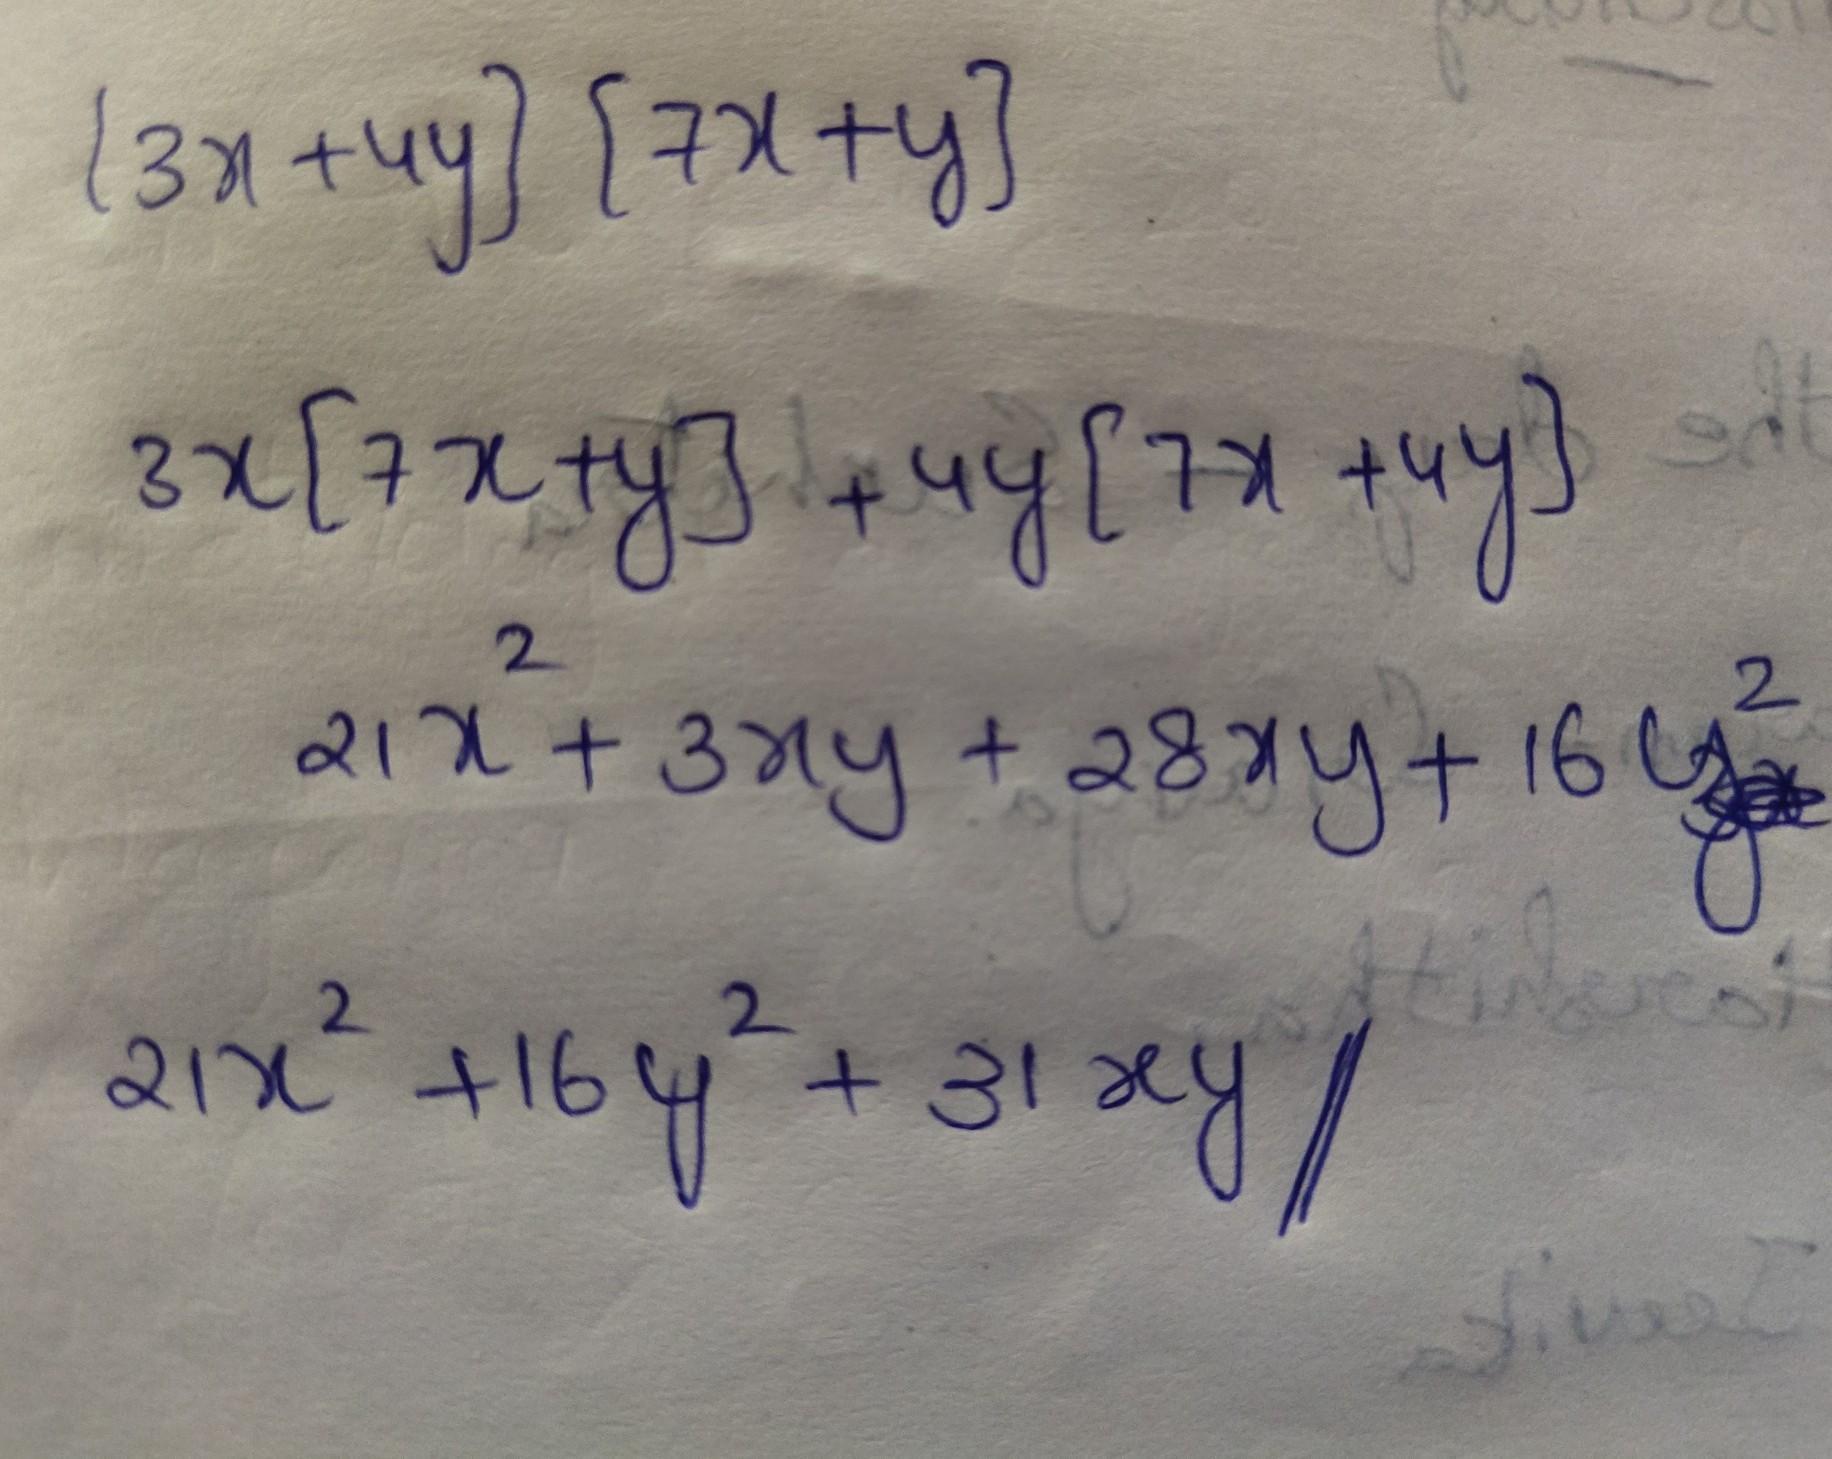 (3x+4y] [7x+y]
3x[7x+y] + 4y[7x+4y]
21x² + 3xy + 28xy + 16y²
21x² + 16y² + 31xy //